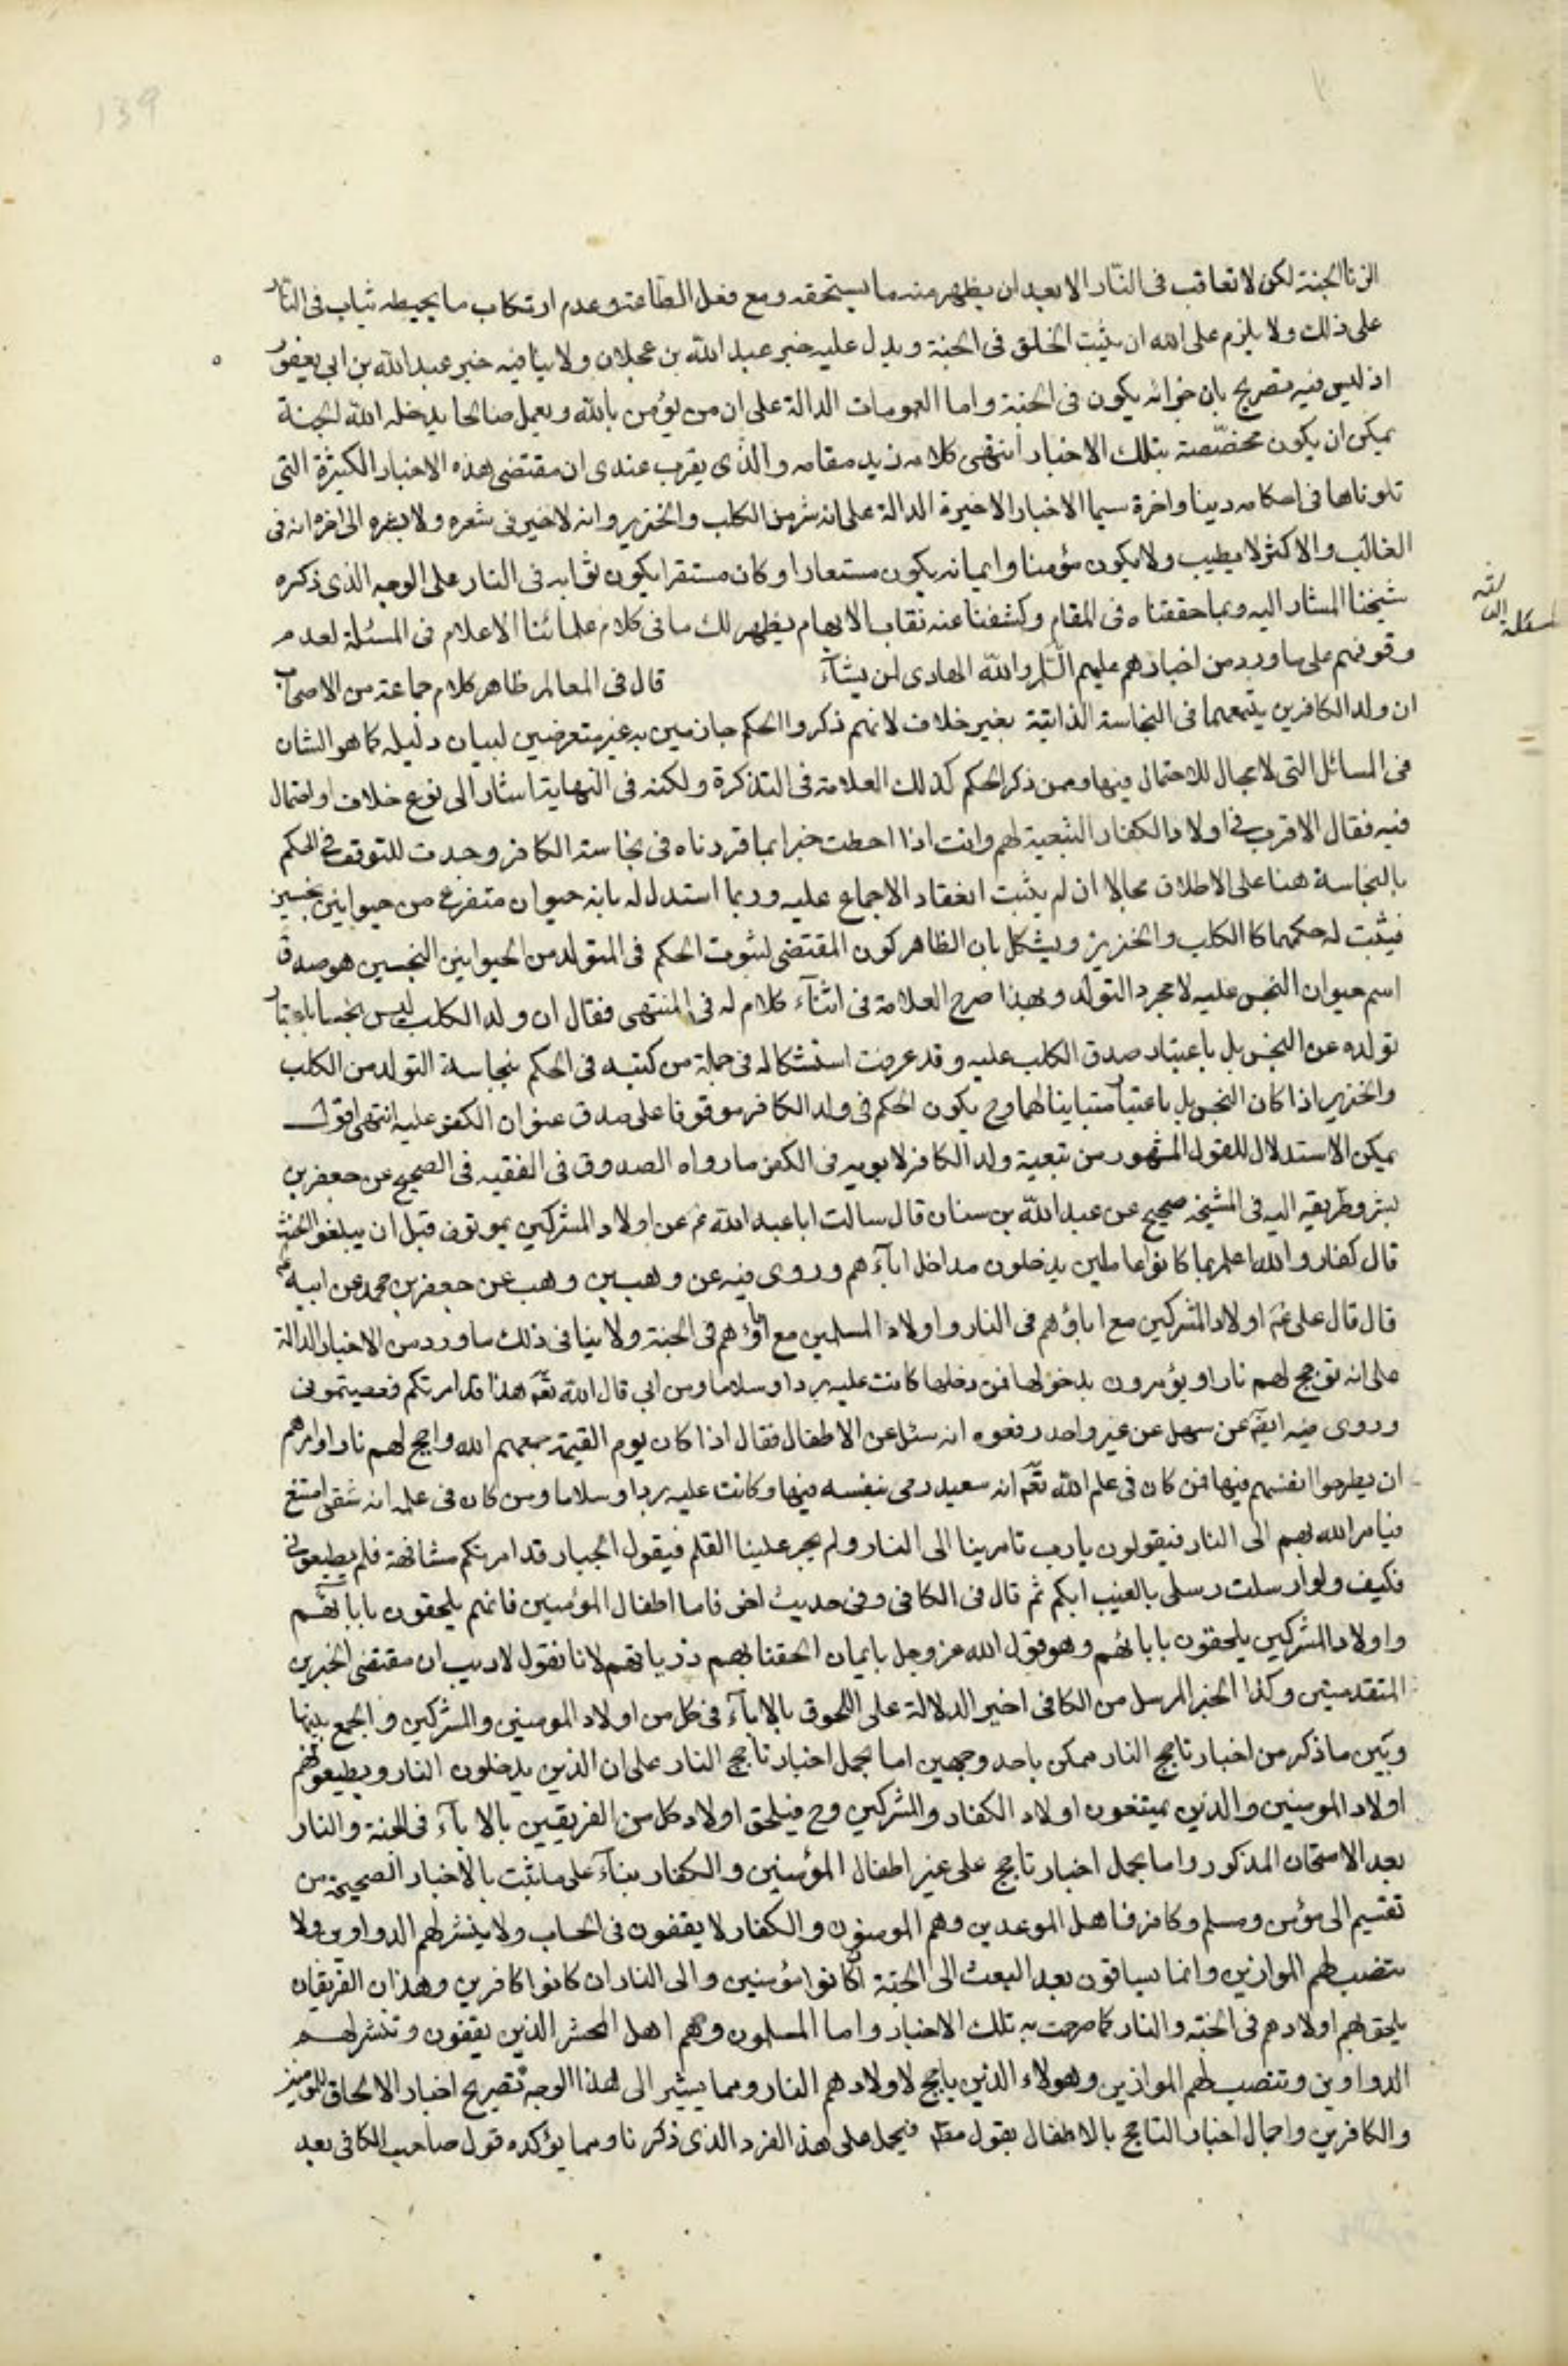 الزنا الجنة لكن لا تعاقب فى النّار الا بعد ان يظهر منه ما يستحقه ومع فعل الطاعة وعدم ارتكاب ما يحبطه يثاب فى النّار
على ذلك ولا يلزم على الله ان يثبت الخلق فى الجنة ويدل عليه خبر عبد الله بن عجلان ولا ينافيه خبر عبد الله بن ابى يعفور
اذ ليس فيه تصريح بان جزائه يكون فى الجنة واما العمومات الدالة على ان من يؤمن بالله ويعمل صالحا يدخله الله الجنة
يمكن ان يكون مخصّصة بتلك الاخبار انتهى كلامه زيد مقامه والذى يقرب عندى ان مقتضى هذه الاخبار الكثيرة التى
تلوناها فى احكامه دينا واخرة سيما الاخبار الاخيرة الدالة على انه شر من الكلب والخنزير وانه لا خير فى شعره ولا بشره الى اخره انه فى
الغالب والاكثر لا يطيب ولا يكون مؤمنا وايمانه يكون مستعارا وكان مستقرا يكون ثوابه فى النار على الوجه الذى ذكره
شيخنا المشار اليه وبما حققناه فى المقام وكشفنا عنه نقاب الابهام يظهر لك ما فى كلام علمائنا الاعلام فى المسئلة لعدم
وقوفهم على ما ورد من اخبارهم عليهم السّلم والله الهادى لمن يشآء قال فى المعالم ظاهر كلام جماعة من الاصحاب
ان ولد الكافرين يتبعهما فى النجاسة الذاتية بغير خلاف لانهم ذكروا الحكم جازمين به غير متعرضين لبيان دليله كما هو الشان
فى المسائل التى لا مجال للاحتمال فيها وممن ذكر الحكم كذلك العلامة فى التذكرة ولكنه فى النهاية اشار الى نوع خلاف او احتمال
فيه فقال الاقرب فى اولاد الكفار التبعية لهم وانت اذا احطت خبرا بما قررناه فى نجاسة الكافر وجدت للتوقف فى الحكم
بالنجاسة هنا على الاطلاق مجالا ان لم يثبت انعقاد الاجماع عليه وربما استدل له بانه حيوان متفرع من حيوانين نجسين
فيثبت له حكمهما كالكلب والخنزير ويشكل بان الظاهر كون المقتضى لثبوت الحكم فى المتولد من الحيوانين النجسين هو صدق
اسم حيوان النجس عليه لا مجرد التولد وبهذا صرح العلامة فى اثنآء كلام له فى المنتهى فقال ان ولد الكلب ليس نجسا باعتبار
تولده عن النجس بل باعتبار صدق الكلب عليه وقد عرفت استشكاله فى جملة من كتبه فى الحكم بنجاسة المتولد من الكلب
والخنزير اذا كان النجس بل باعتبار متباينا لهما وح يكون الحكم فى ولد الكافر موقوفا على صدق عنوان الكفر عليه انتهى اقول
يمكن الاستدلال للقول المشهور من تبعية ولد الكافر لابويه فى الكفر ما رواه الصدوق فى الفقيه فى الصحيح عن جعفر بن
بشر وطريقه اليه فى المشيخة صحيح عن عبد الله بن سنان قال سالت ابا عبد الله ع عن اولاد المشركين يموتون قبل ان يبلغوا الحنث
قال كفار والله اعلم بما كانوا عاملين يدخلون مداخل ابآءهم وروى فيه عن وهب بن وهب عن جعفر بن محمد عن ابيه ع
قال قال على ع اولاد المشركين مع اباؤهم فى النار واولاد المسلمين مع اباؤهم فى الجنة ولا ينافى ذلك ما ورد من الاخبار الدالة
على انه توجج لهم نارا ويؤمرون بدخولها فمن دخلها كانت عليه بردا وسلاما ومن ابى قال الله تع هذا قد امرتكم فعصيتمونى
وروى فيه ايضا عن سهل عن غير واحد رفعوه انه سئل عن الاطفال فقال اذا كان يوم القيمة جمعهم الله واجج لهم نارا وامرهم
ان يطرحوا انفسهم فيها فمن كان فى علم الله تع انه سعيد رمى بنفسه فيها وكانت عليه بردا وسلاما ومن كان فى علمه انه شقى امتنع
فيامر الله بهم الى النار فيقولون يا رب تامرنا الى النار ولم يجر علينا القلم فيقول الجبار قد امرتكم مشافهة فلم يطيعونى
فكيف ولو ارسلت رسلى بالغيب اليكم ثم قال فى الكافى وفى حديث اخر فاما اطفال المؤمنين فانهم يلحقون بابائهم
واولاد المشركين يلحقون بابائهم وهو قول الله عز وجل بايمان الحقنا بهم ذرياتهم لانا نقول لا ريب ان مقتضى الخبرين
المتقدمين وكذا الخبر المرسل من الكافى اخير الدلالة على اللحوق بالابآء فى كل من اولاد المومنين والمشركين والجمع بينها
وبين ما ذكر من اخبار تاجج النار ممكن باحد وجهين اما بحمل اخبار تاجج النار على ان الذين يدخلون النار ويطيعونهم
اولاد المومنين والذين يمتنعون اولاد الكفار والمشركين وح فيلحق اولاد كل من الفريقين بالابآء فى الجنة والنار
بعد الامتحان المذكور واما بحمل اخبار تاجج على غير اطفال المؤمنين والكفار بنآء على ما ثبت بالاخبار الصحيحة من
تقسيم الى مؤمن ومسلم وكافر فاهل الموعدين وهم المومنون والكفار لا يقفون فى الحساب ولا ينشر لهم الدواوين ولا
تنصب لهم الموازين وانما يساقون بعد البعث الى الجنة ان كانوا مؤمنين والى النار ان كانوا كافرين وهذان الفريقان
يلحق بهم اولادهم فى الجنة والنار كما صرحت به تلك الاخبار واما المسلمون وهم اهل المحشر الذين يقفون وتنشر لهم
الدواوين وتنصب لهم الموازين وهولاء الذين ياجج لاولادهم النار ومما يشير الى هذا الوجه تصريح اخبار الالحاق بالمومنين
والكافرين واجمال اخبار التاجج بالاطفال بقول مطلق فيحمل على هذ الفرد الذى ذكرنا ومما يؤكده قول صاحب الكافى بعد
139